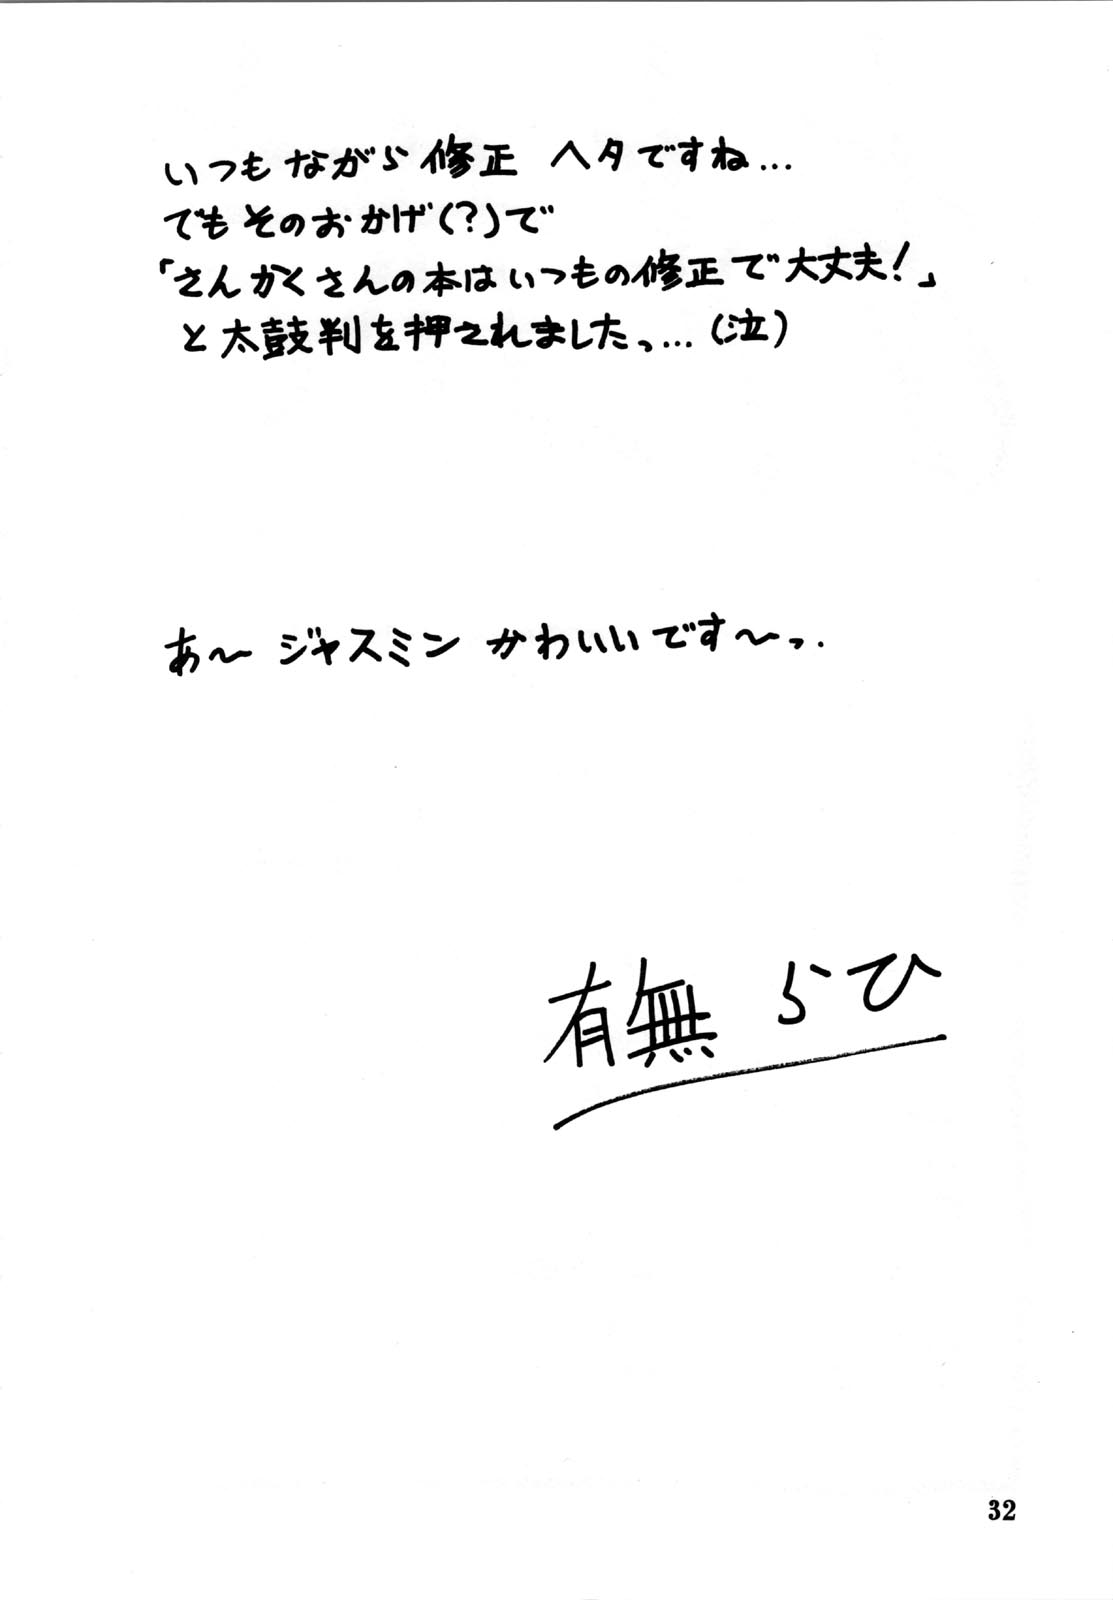 いつもながら修正 ヘタですね...
でもそのおかげ(?)で
「さんかくさんの本はいつもの修正で大丈夫!」
と太鼓判を押されましたっ...(泣)
あ〜 ジャスミン かわいいです〜っ.
有無 らひ
32